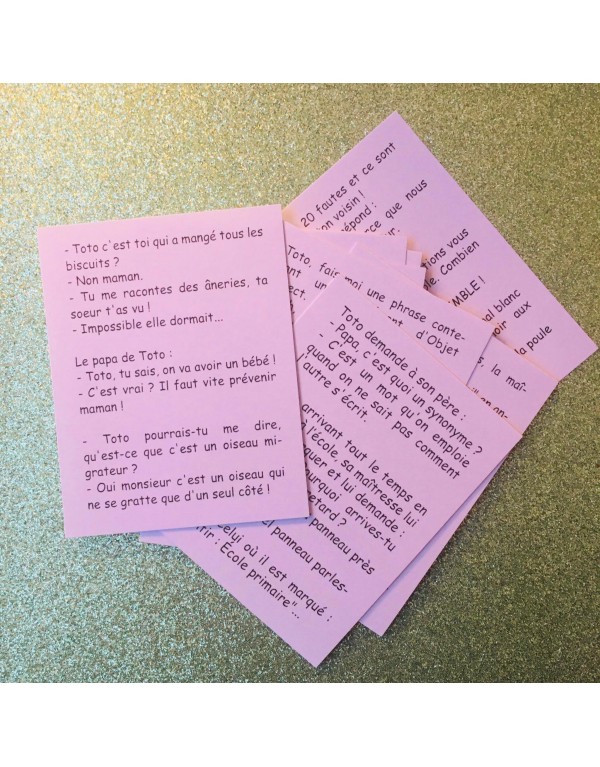 - Toto c'est toi qui a mangé tous les
biscuits ?
- Non maman.
- Tu me racontes des âneries, ta
soeur t'as vu !
- Impossible elle dormait...
Le papa de Toto :
- Toto, tu sais, on va avoir un bébé !
- C'est vrai ? Il faut vite prévenir
maman !
- Toto pourrais-tu me dire,
qu'est-ce que c'est un oiseau mi-
grateur ?
- Oui monsieur c'est un oiseau qui
ne se gratte que d'un seul côté !
20 fautes et ce sont
on voisin !
répond :
ce que nous
tions vous
le. Combien
MBLE !
al blanc
oir aux
la poule
Toto, fais-moi une phrase conte-
ant un
d'Objet
ect.
s, la maî-
Toto demande à son père :
- Papa, c'est quoi un synonyme ?
- C'est un mot qu'on emploie
quand on ne sait pas comment
l'autre s'écrit.
arrivant tout le temps en
à l'école, sa maîtresse lui
quer et lui demande :
urquoi arrives-tu
retard ?
panneau près
el panneau parles-
Celui où il est marqué :
tir : École primaire"...